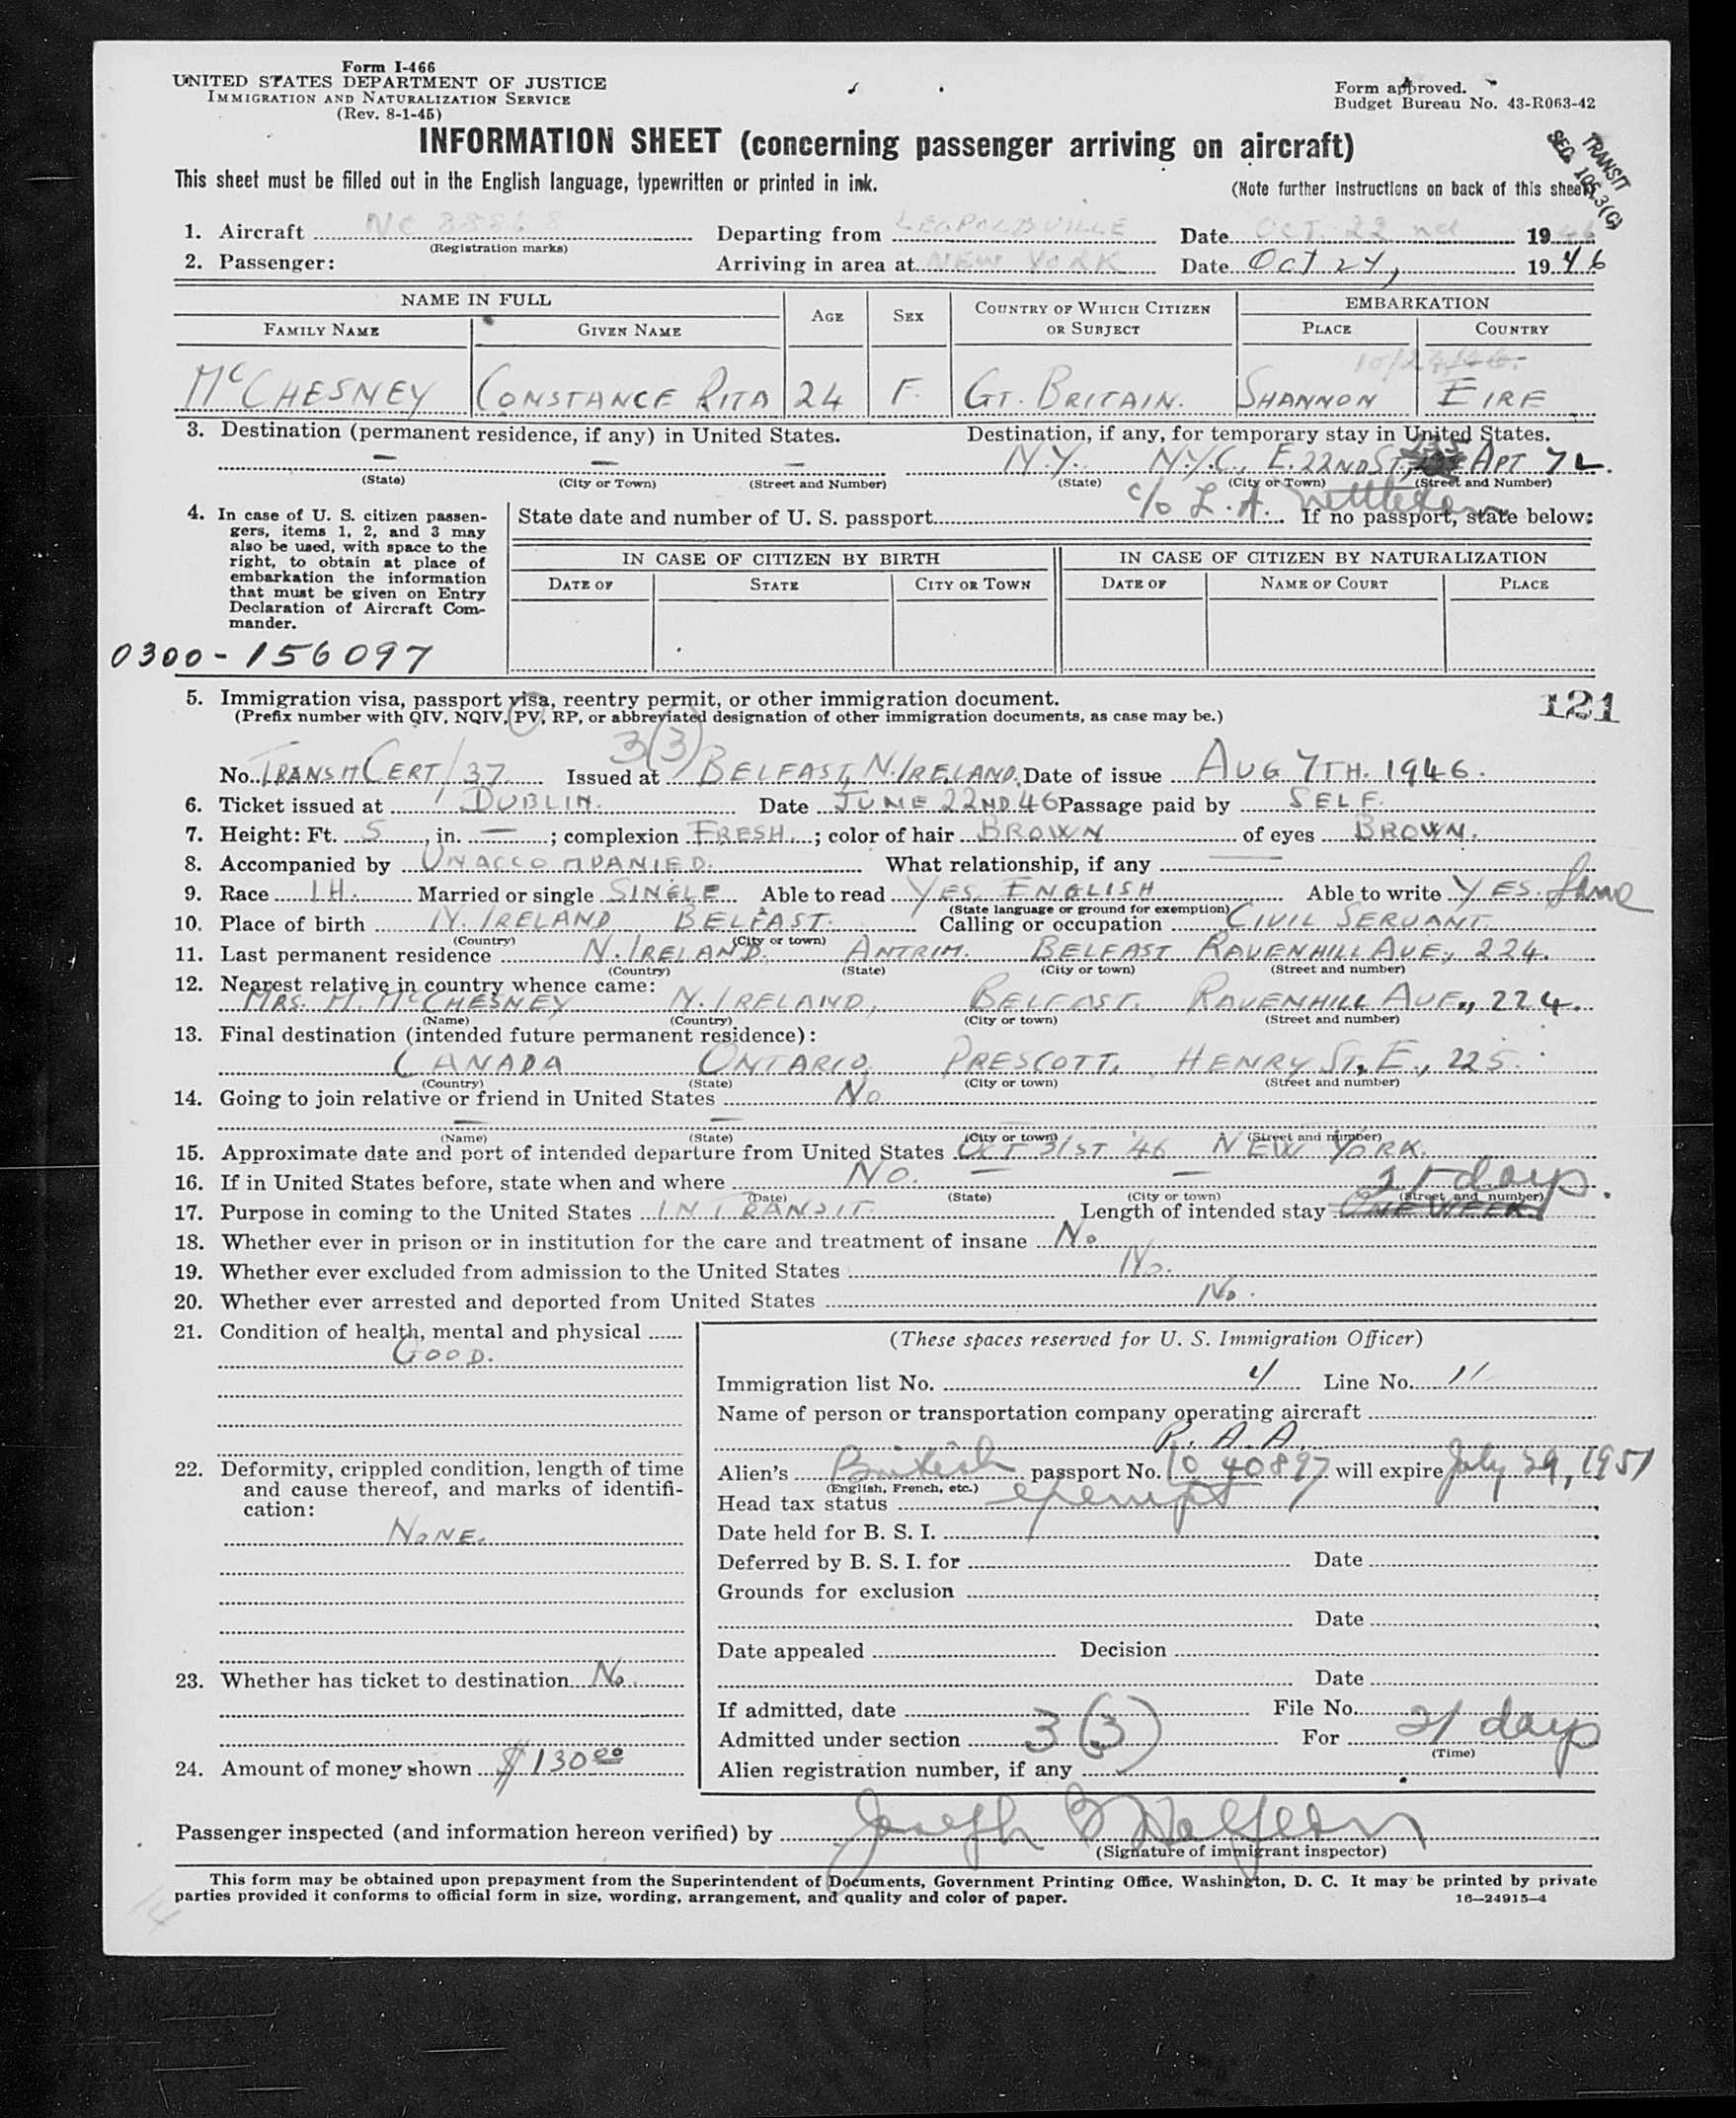 Form I-466
UNITED STATES DEPARTMENT OF JUSTICE
IMMIGRATION AND NATURALIZATION SERVICE
(Rev. 8-1-45)
Form approved.
Budget Bureau No. 43-R063-42
INFORMATION SHEET (concerning passenger arriving on aircraft)
TRANSIT
SEC. 105.3(C)
This sheet must be filled out in the English language, typewritten or printed in ink. (Note further instructions on back of this sheet)
1. Aircraft NC 88868 Departing from LEOPOLDVILLE Date OCT. 22 nd 1946
(Registration marks)
2. Passenger: Arriving in area at NEW YORK Date Oct 24, 1946
NAME IN FULL AGE SEX COUNTRY OF WHICH CITIZEN OR SUBJECT EMBARKATION
FAMILY NAME GIVEN NAME PLACE COUNTRY
10/24/46
McCHESNEY CONSTANCE RITA 24 F. GT. BRITAIN. SHANNON EIRE
3. Destination (permanent residence, if any) in United States. Destination, if any, for temporary stay in United States.
— — — N.Y. N.Y.C., E. 22ND ST., 235 APT 7L.
(State) (City or Town) (Street and Number) (State) (City or Town) (Street and Number)
c/o L. A. Nettleton
4. In case of U. S. citizen passengers, items 1, 2, and 3 may also be used, with space to the right, to obtain at place of embarkation the information that must be given on Entry Declaration of Aircraft Commander.
State date and number of U. S. passport If no passport, state below:
IN CASE OF CITIZEN BY BIRTH IN CASE OF CITIZEN BY NATURALIZATION
DATE OF STATE CITY OR TOWN DATE OF NAME OF COURT PLACE
0300-156097
5. Immigration visa, passport visa, reentry permit, or other immigration document. 121
(Prefix number with QIV, NQIV, PV, RP, or abbreviated designation of other immigration documents, as case may be.)
3(3)
No. TRANSIT CERT/37 Issued at BELFAST, N. IRELAND. Date of issue AUG 7TH. 1946.
6. Ticket issued at DUBLIN. Date JUNE 22ND 46 Passage paid by SELF.
7. Height: Ft. 5, in. —; complexion FRESH.; color of hair BROWN of eyes BROWN.
8. Accompanied by UNACCOMPANIED. What relationship, if any —
9. Race IH. Married or single SINGLE Able to read YES, ENGLISH Able to write YES. Same
(State language or ground for exemption)
10. Place of birth N. IRELAND BELFAST. Calling or occupation CIVIL SERVANT.
(Country) (City or town)
11. Last permanent residence N. IRELAND. ANTRIM. BELFAST RAVENHILL AVE., 224.
(Country) (State) (City or town) (Street and number)
12. Nearest relative in country whence came:
MRS. M. McCHESNEY N. IRELAND, BELFAST. RAVENHILL AVE., 224.
(Name) (Country) (City or town) (Street and number)
13. Final destination (intended future permanent residence):
CANADA ONTARIO, PRESCOTT, HENRY ST. E., 225.
(Country) (State) (City or town) (Street and number)
14. Going to join relative or friend in United States No
— —
(Name) (State) (City or town) (Street and number)
15. Approximate date and port of intended departure from United States OCT 31ST '46 NEW YORK.
16. If in United States before, state when and where NO. — —
(Date) (State) (City or town) (Street and number)
21 days.
17. Purpose in coming to the United States IN TRANSIT Length of intended stay ONE WEEK.
18. Whether ever in prison or in institution for the care and treatment of insane No
19. Whether ever excluded from admission to the United States No.
20. Whether ever arrested and deported from United States No.
21. Condition of health, mental and physical
GOOD.
(These spaces reserved for U. S. Immigration Officer)
Immigration list No. 4 Line No. 11
Name of person or transportation company operating aircraft
P. A. A.
22. Deformity, crippled condition, length of time and cause thereof, and marks of identification:
NONE.
Alien's British passport No. 1040897 will expire July 29, 1951
(English, French, etc.)
Head tax status exempt
Date held for B. S. I.
Deferred by B. S. I. for Date
Grounds for exclusion
Date
Date appealed Decision
23. Whether has ticket to destination No.
Date
If admitted, date File No.
Admitted under section 3(3) For 21 days
(Time)
24. Amount of money shown $130.00
Alien registration number, if any
Passenger inspected (and information hereon verified) by Joseph B Halfern
(Signature of immigrant inspector)
This form may be obtained upon prepayment from the Superintendent of Documents, Government Printing Office, Washington, D. C. It may be printed by private
parties provided it conforms to official form in size, wording, arrangement, and quality and color of paper. 16—24915-4